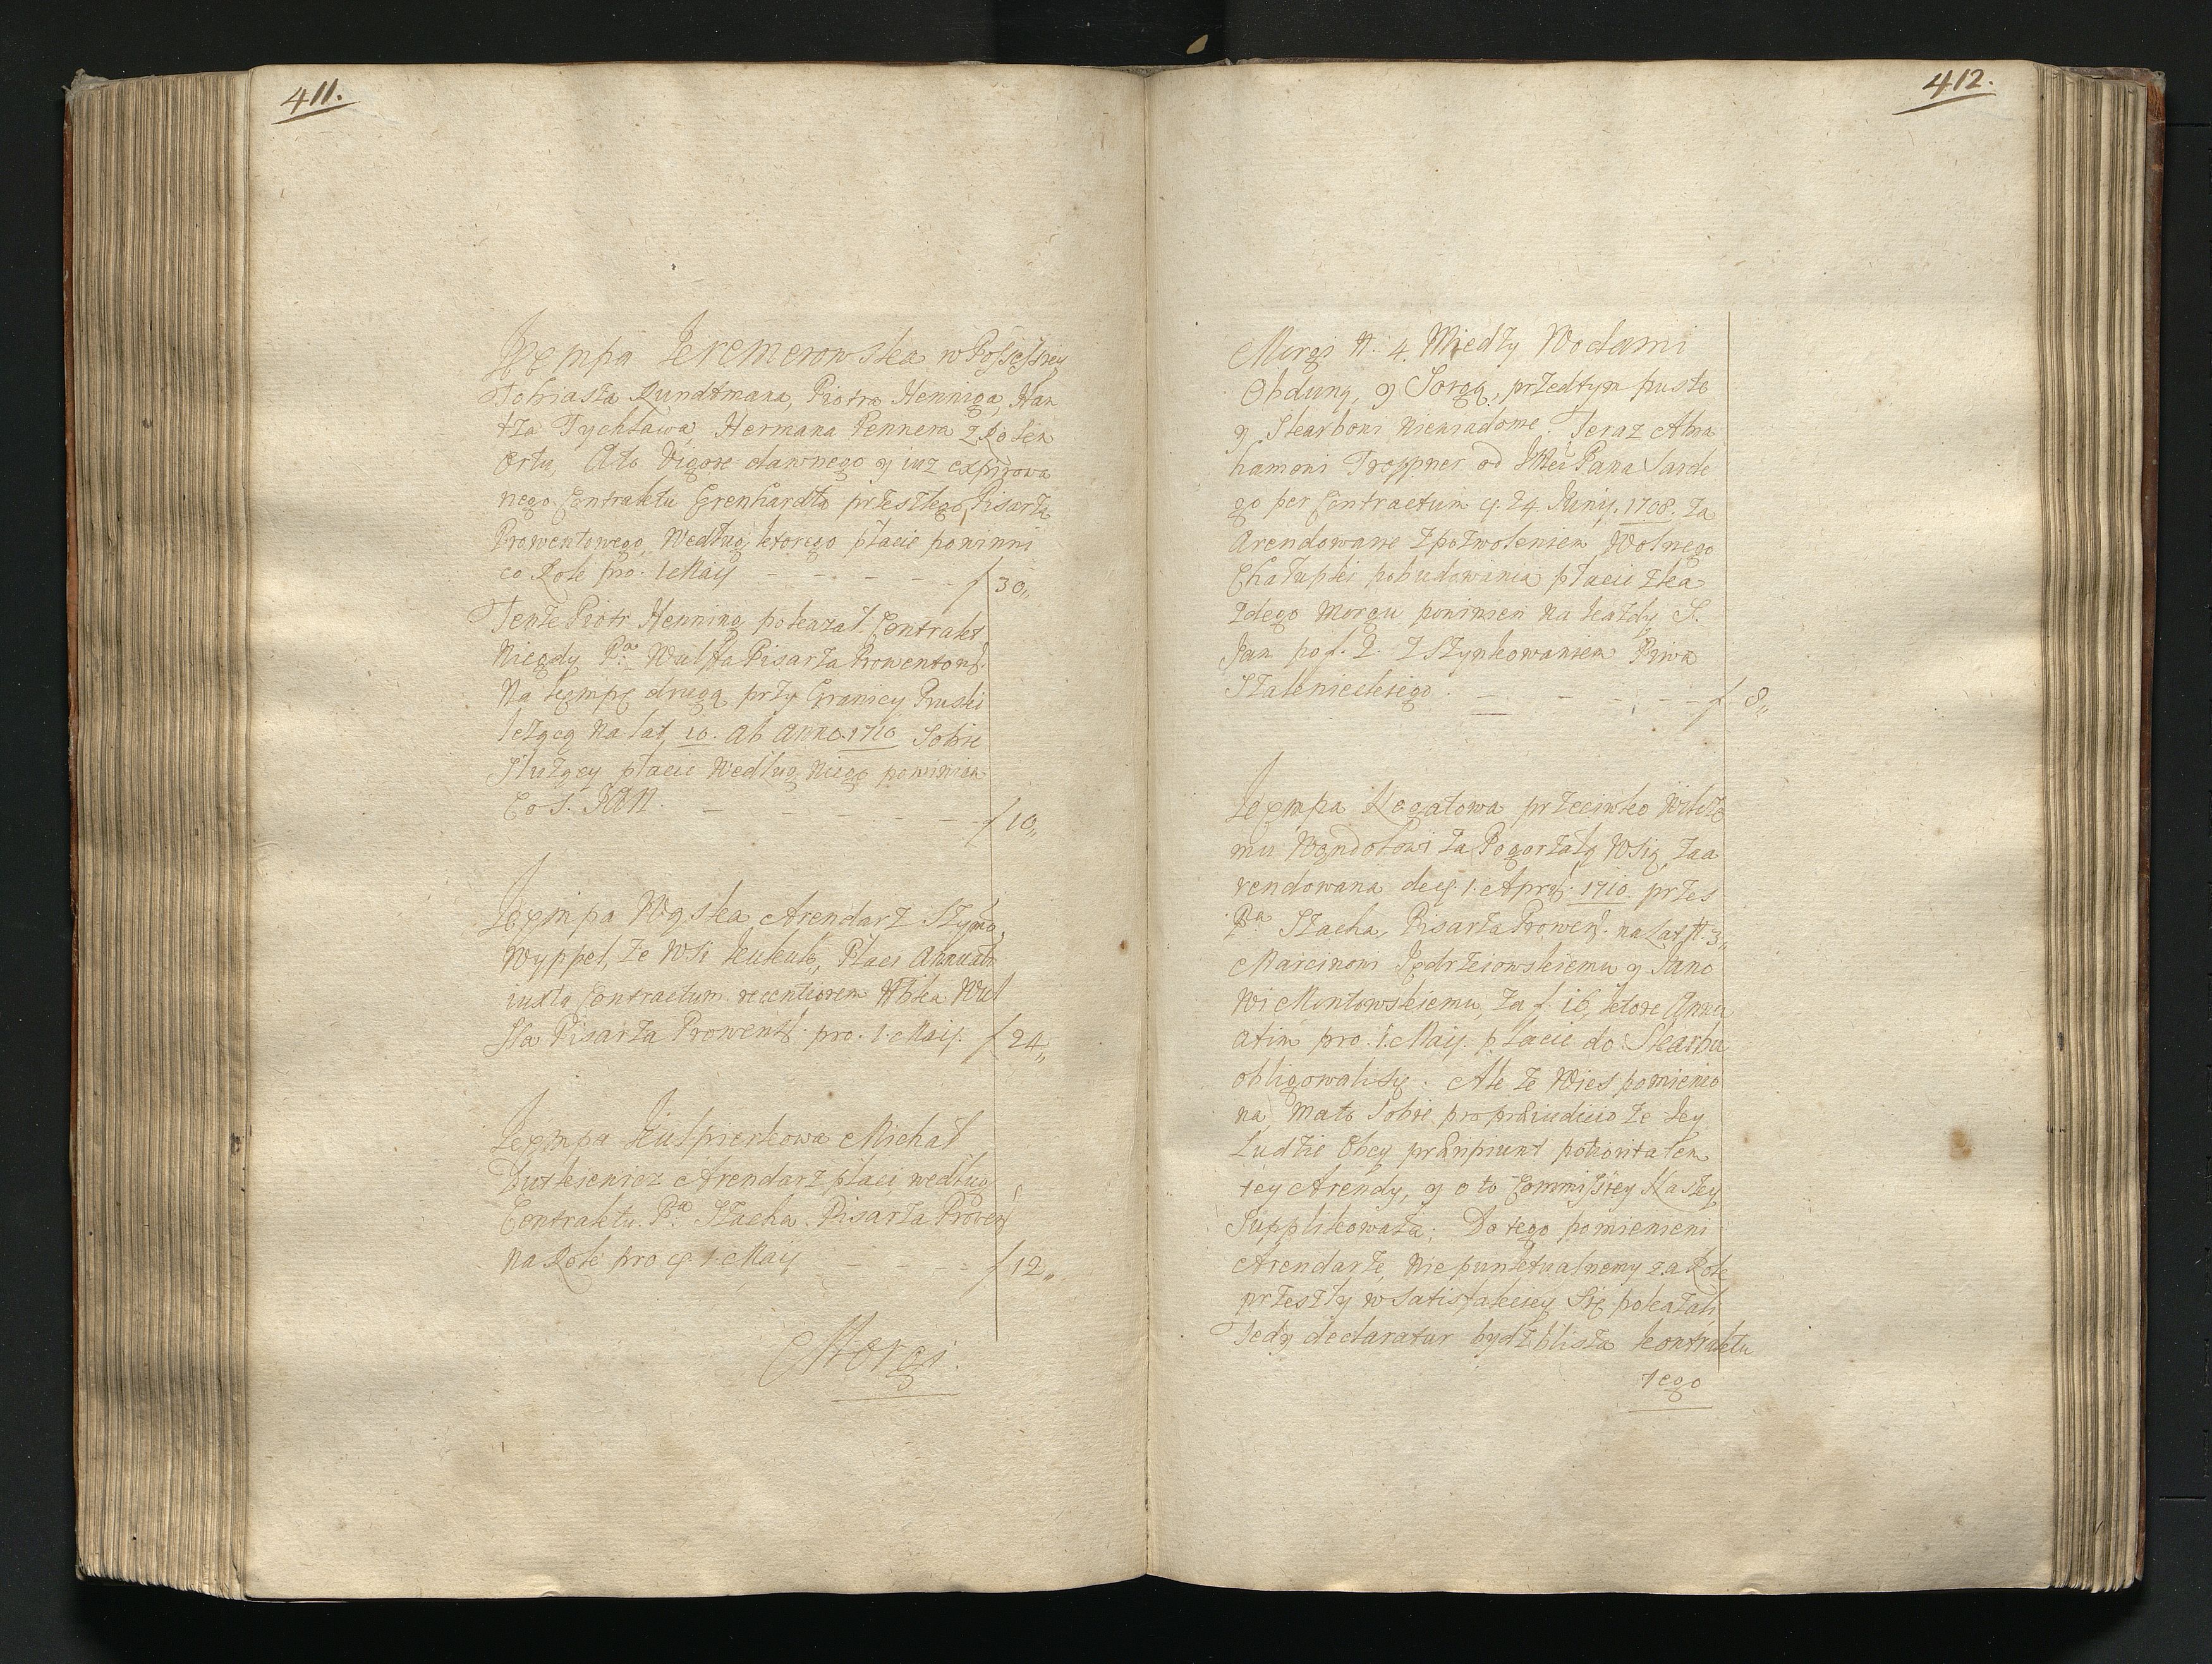 411.
Kępmpa Jeremerowska w Possessyey
Tobiasza Rundtmana, Piotra Henniga, Han
tza Tychtawa, Hermana Pennera z Rosen
ortu, Ato Vigore dawnego y iuz expirowa
nego Contraktu Erenhardta przeszłego Pisarza
Prowentowego, Według ktorego płacic powinni
co Rok pro. 1 Maij - - - - - f 30,,
Tenże Piotr Henning pokazał Contrakt
Niegdy Pa Wulffa Pisarza Prowentow:
Na kęmpę drugą przy Granicy Pruski
leżącą Na lat 10. ab anno 1710 Sobie
Służący płacic Według Niego powinien
Co S. JAN. - - - - - f 10,,
Kępmpa Wąska Arendarz Szymo,
Wyppel, Ze Wsi kukuk, Płaci Annuatì
iuxta Contractum recentiorem Nbka Wul
ffa Pisarza Prowent: pro. 1. Maij. f 24,,
Kępmpa Kulpierkowa Michał
Dutkiewicz Arendarz płaci według
Contraktu. Pa Szacha. Pisarza Proven
Na Rok pro 1. Maij - - - f 12,,
Morgi.
412.
Morgi N. 4. Miedzy Wodami
Obdung, y Sorgą, przedtym puste
y Skarbowi Niewiadome. Teraz Abra
hamowi Troppner od JMci Pana Sarde
go per Contractum 24. Junij. 1708. Za
arendowane z pozwoleniem Wolnego
Chałupki pobudowania płacic z ka
żdego Morgu powinien Na każdy S.
Jan po f. 2. Z Szynkowaniem Piwa
Szalenieckiego. - - - - f 8,,
Kępmpa Nogatowa przeciwko Wilcze
mu Wądołowi za Pogorzałą Wsią, zaa
rendowana de 1. April: 1710. przes
Pa Szacha, Pisarza Prowen: na Lat N. 3,,
Marcinowi Jędrzeiowskiemu y Jano
wi Montowskiemu, za f. 16, ktore Annu
atim pro. 1. Maij. płacic do Skarbu
obligowali się. Ale że Wies pomienio
na Mało Sobie pro præiudicio że Jey
Ludzie Obcy præripiunt potioritatem
tey Arendy, y o to Commissiey Naszey
Supplikowała. Do tego pomienieni
Arendarze, Nie punktualnemy za Rok
przeszły w Satisfakciey Się pokazali
Tedy declaratur bydź blisza kontraktu
tego